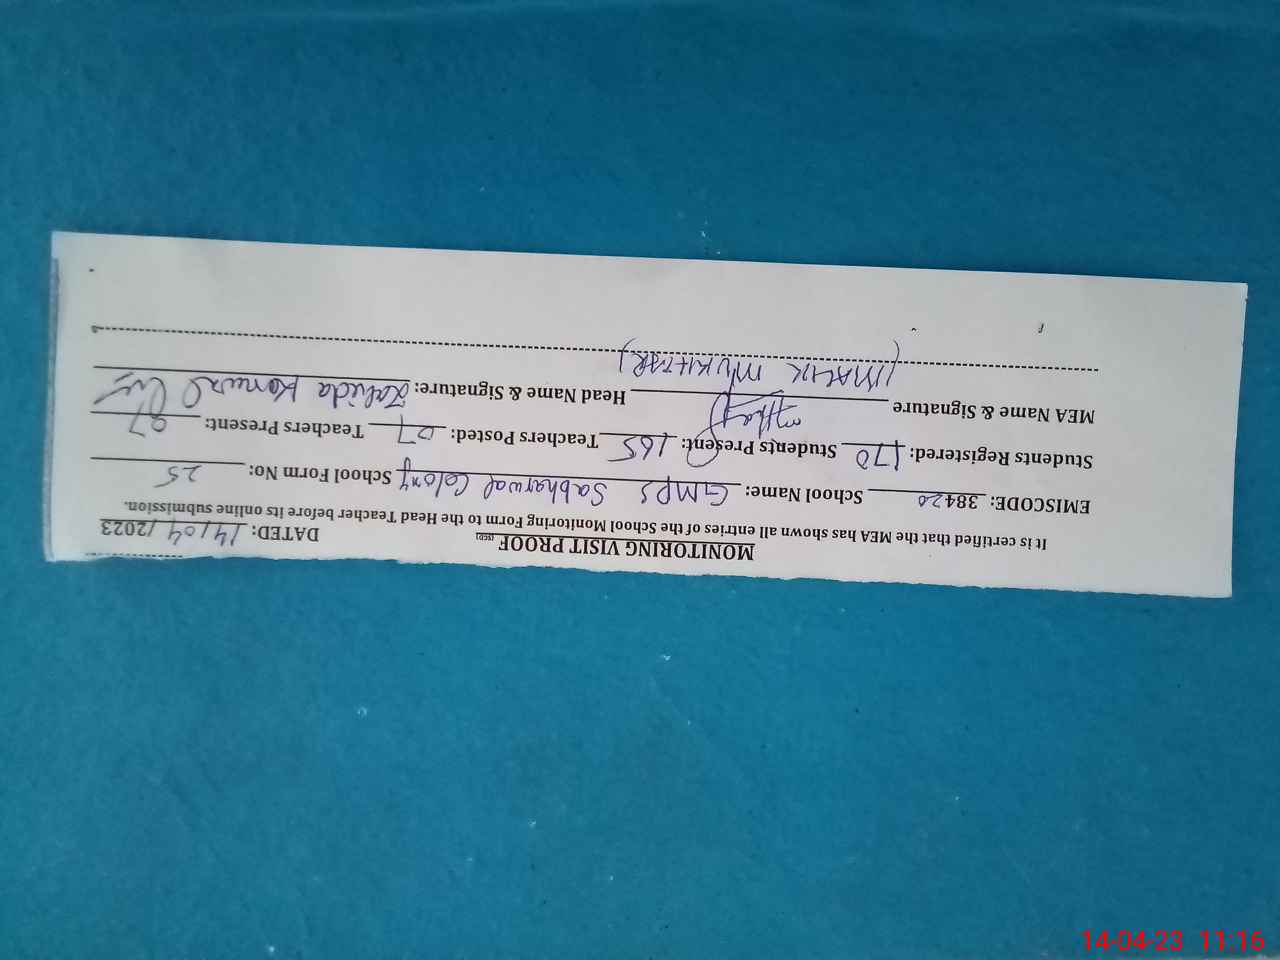 MONITORING VISIT PROOF (SED)
DATED: 14/04/2023
It is certified that the MEA has shown all entries of the School Monitoring Form to the Head Teacher before its online submission.
EMISCODE: 38420 School Name: GMPS Sabharwal Colony School Form No: 25
Students Registered: 170 Students Present: 165 Teachers Posted: 07 Teachers Present: 07
MEA Name & Signature Head Name & Signature: Zahida Kanwal
(MALIK MUKHTAR)
14-04-23 11:16